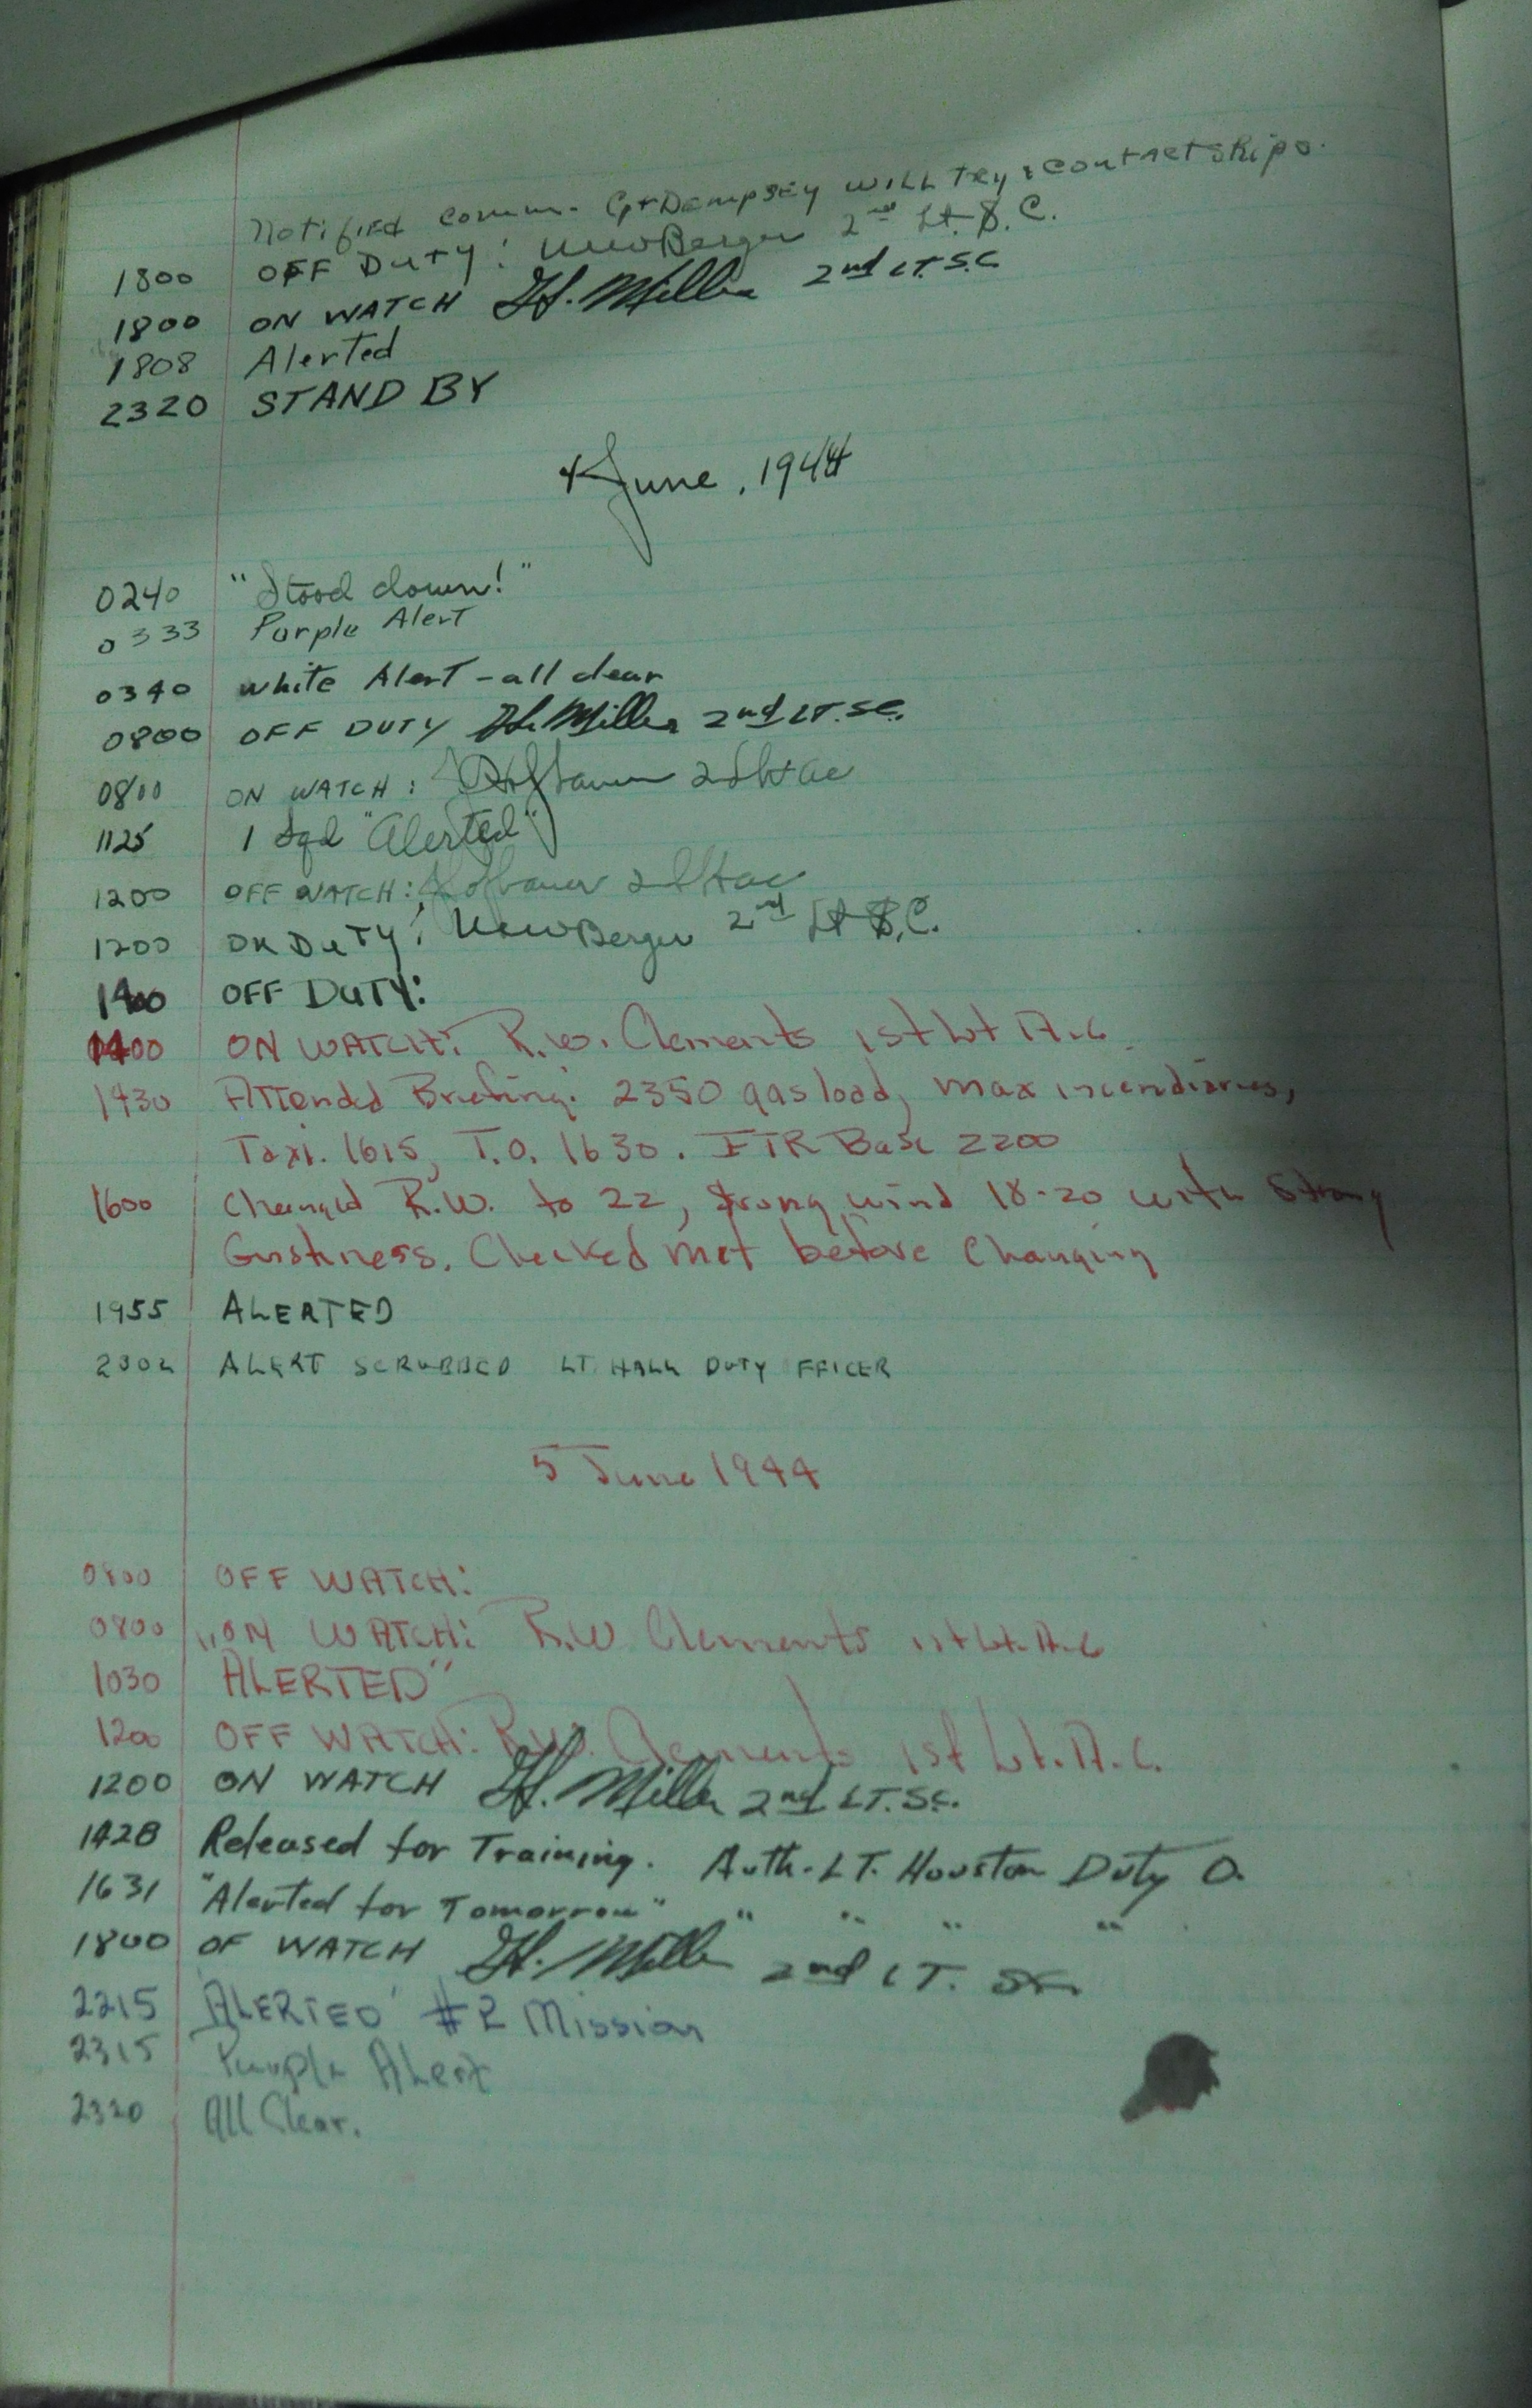 Notified Comm. Cpt Dempsey will try & contact ships.
1800 OFF DUTY: NewBerger 2nd Lt. S.C.
1800 ON WATCH H. Miller 2nd LT. S.C
1808 Alerted
2320 STAND BY
4 June, 1944
0240 "Stood down!"
0333 Purple Alert
0340 White Alert - all clear
0800 OFF DUTY H. Miller 2nd LT. SC.
0800 ON WATCH: Hofbauer 2d Lt ac
1125 1 Sqd "Alerted"
1200 OFF WATCH: Hofbauer 2d Lt ac
1200 ON DUTY: NewBerger 2nd Lt S.C.
1400 OFF DUTY:
1400 ON WATCH: R.W. Clements 1st Lt A.C
1430 Attended Briefing: 2350 gas load, max incendiaries,
Taxi. 1615, T.O. 1630. ETR Base 2200
1600 Changed R.W. to 22, Strong wind 18-20 with Strong
Gustiness. Checked met before Changing
1955 ALERTED
2302 ALERT SCRUBBED LT. HALL DUTY FFICER
5 June 1944
0800 OFF WATCH:
0800 "ON WATCH: R.W. Clements 1st Lt. A.C
1030 ALERTED"
1200 OFF WATCH: R.W. Clements 1st Lt. A.C.
1200 ON WATCH H. Miller 2nd LT. SC.
1428 Released for Training. Auth. LT. Houston Duty O.
1631 "Alerted for Tomorrow" " " " "
1800 OF WATCH H. Miller 2nd LT. SC.
2215 ALERTED #2 Mission
2315 Purple Alert
2320 All Clear.